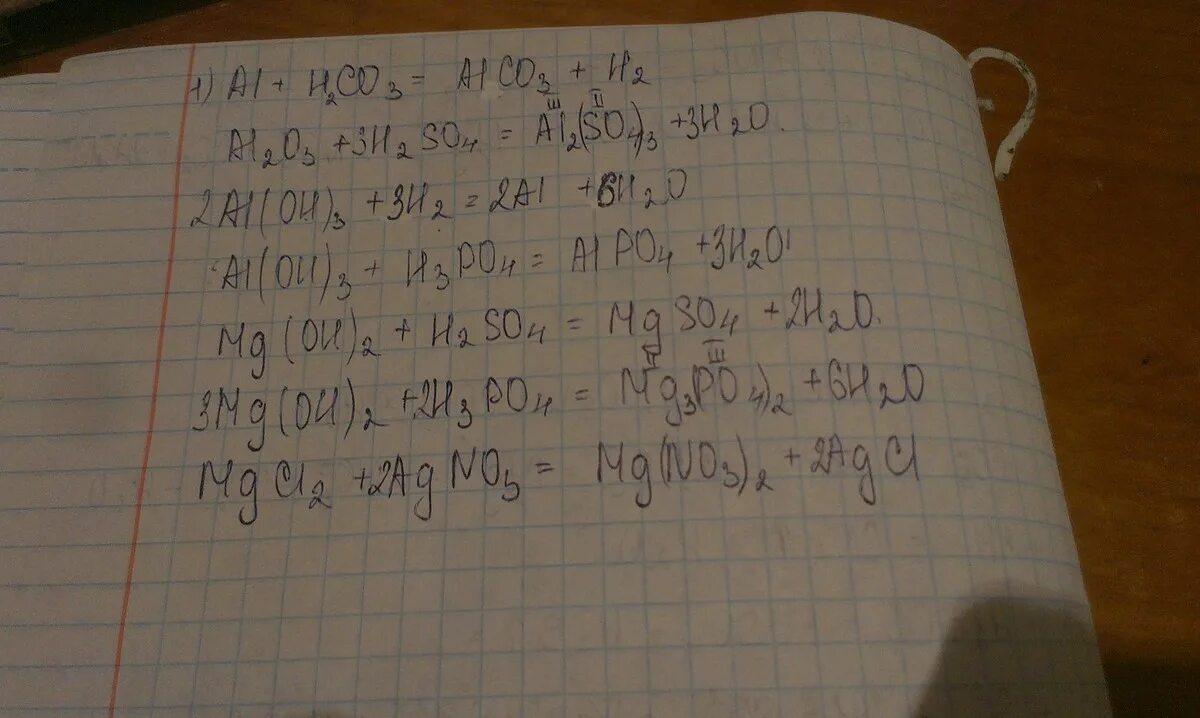 1) Al + H₂CO₃ = AlCO₃ + H₂
Al₂O₃ + 3H₂SO₄ = Al₂(SO₄)₃ + 3H₂O.
2Al(OH)₃ + 3H₂ = 2Al + 6H₂O
Al(OH)₃ + H₃PO₄ = AlPO₄ + 3H₂O
Mg(OH)₂ + H₂SO₄ = MgSO₄ + 2H₂O.
3Mg(OH)₂ + 2H₃PO₄ = Mg₃(PO₄)₂ + 6H₂O
MgCl₂ + 2AgNO₃ = Mg(NO₃)₂ + 2AgCl